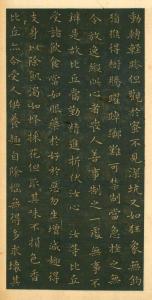 動轉輕躁但觀於蜜不見深坑又如狂象無鉤
猿猴得樹騰躍踔躑難可禁制當急挫之無
令放逸縱此心者喪人善事制之一處無事不
辦是故比丘當勤精進折伏汝心 汝等比丘
受諸飲食當如服藥於好於惡勿生增減趣得
支身以除飢渴如蜂採花但取其味不損色香
比丘亦爾受人供養趣自除惱無得多求壞其